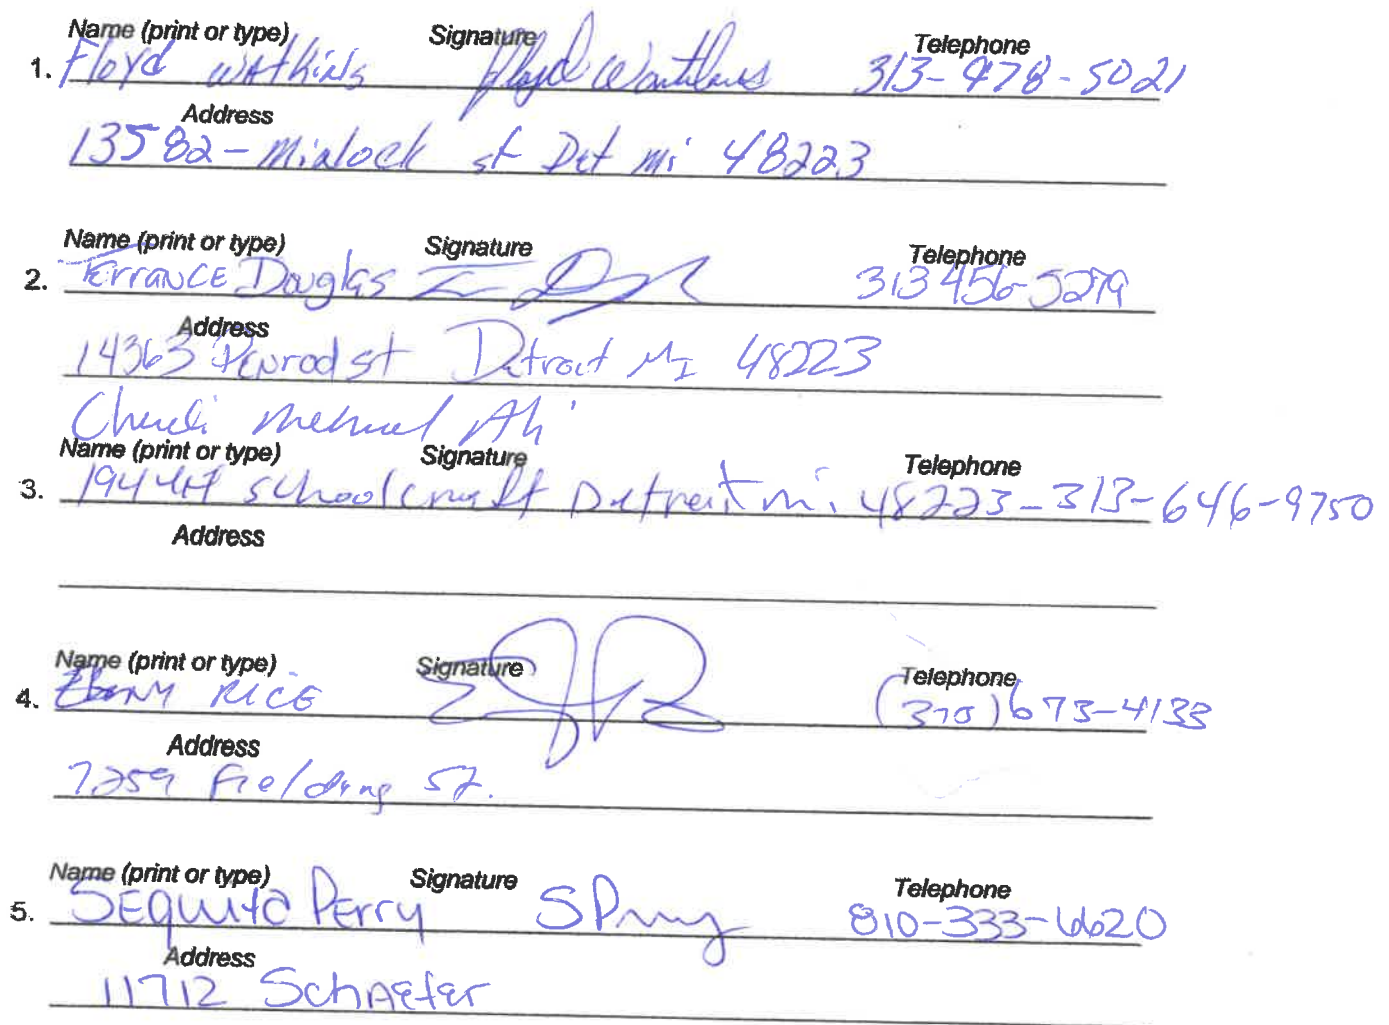 Name (print or type) Signature Telephone
1. Floyd Watkins Floyd Watkins 313-978-5021
Address
13582- st Det mi 48223
Name (print or type) Signature Telephone
2. Terrance Douglas 313 456-5279
Address
14363 Penrod st Detroit MI 48223
Ali
Name (print or type) Signature Telephone
3. 19444 schoolcraft Detroit mi. 48223-313-646-9750
Address
Name (print or type) Signature Telephone
4. Ebony RICE 673-4133
Address
7259 Fielding St.
Name (print or type) Signature Telephone
5. SEquita PErry SPerry 810-333-6620
Address
11712 SchAefer